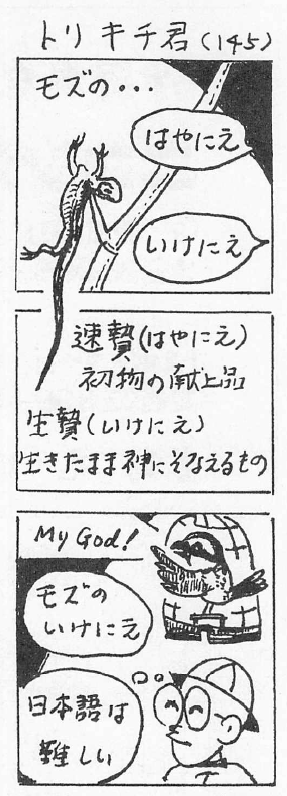 トリキチ君(145)
モズの・・・
はやにえ
いけにえ
速贄(はやにえ)
初物の献上品
生贄(いけにえ)
生きたまま神にそなえるもの
My God!
モズの
いけにえ
日本語は
難しい